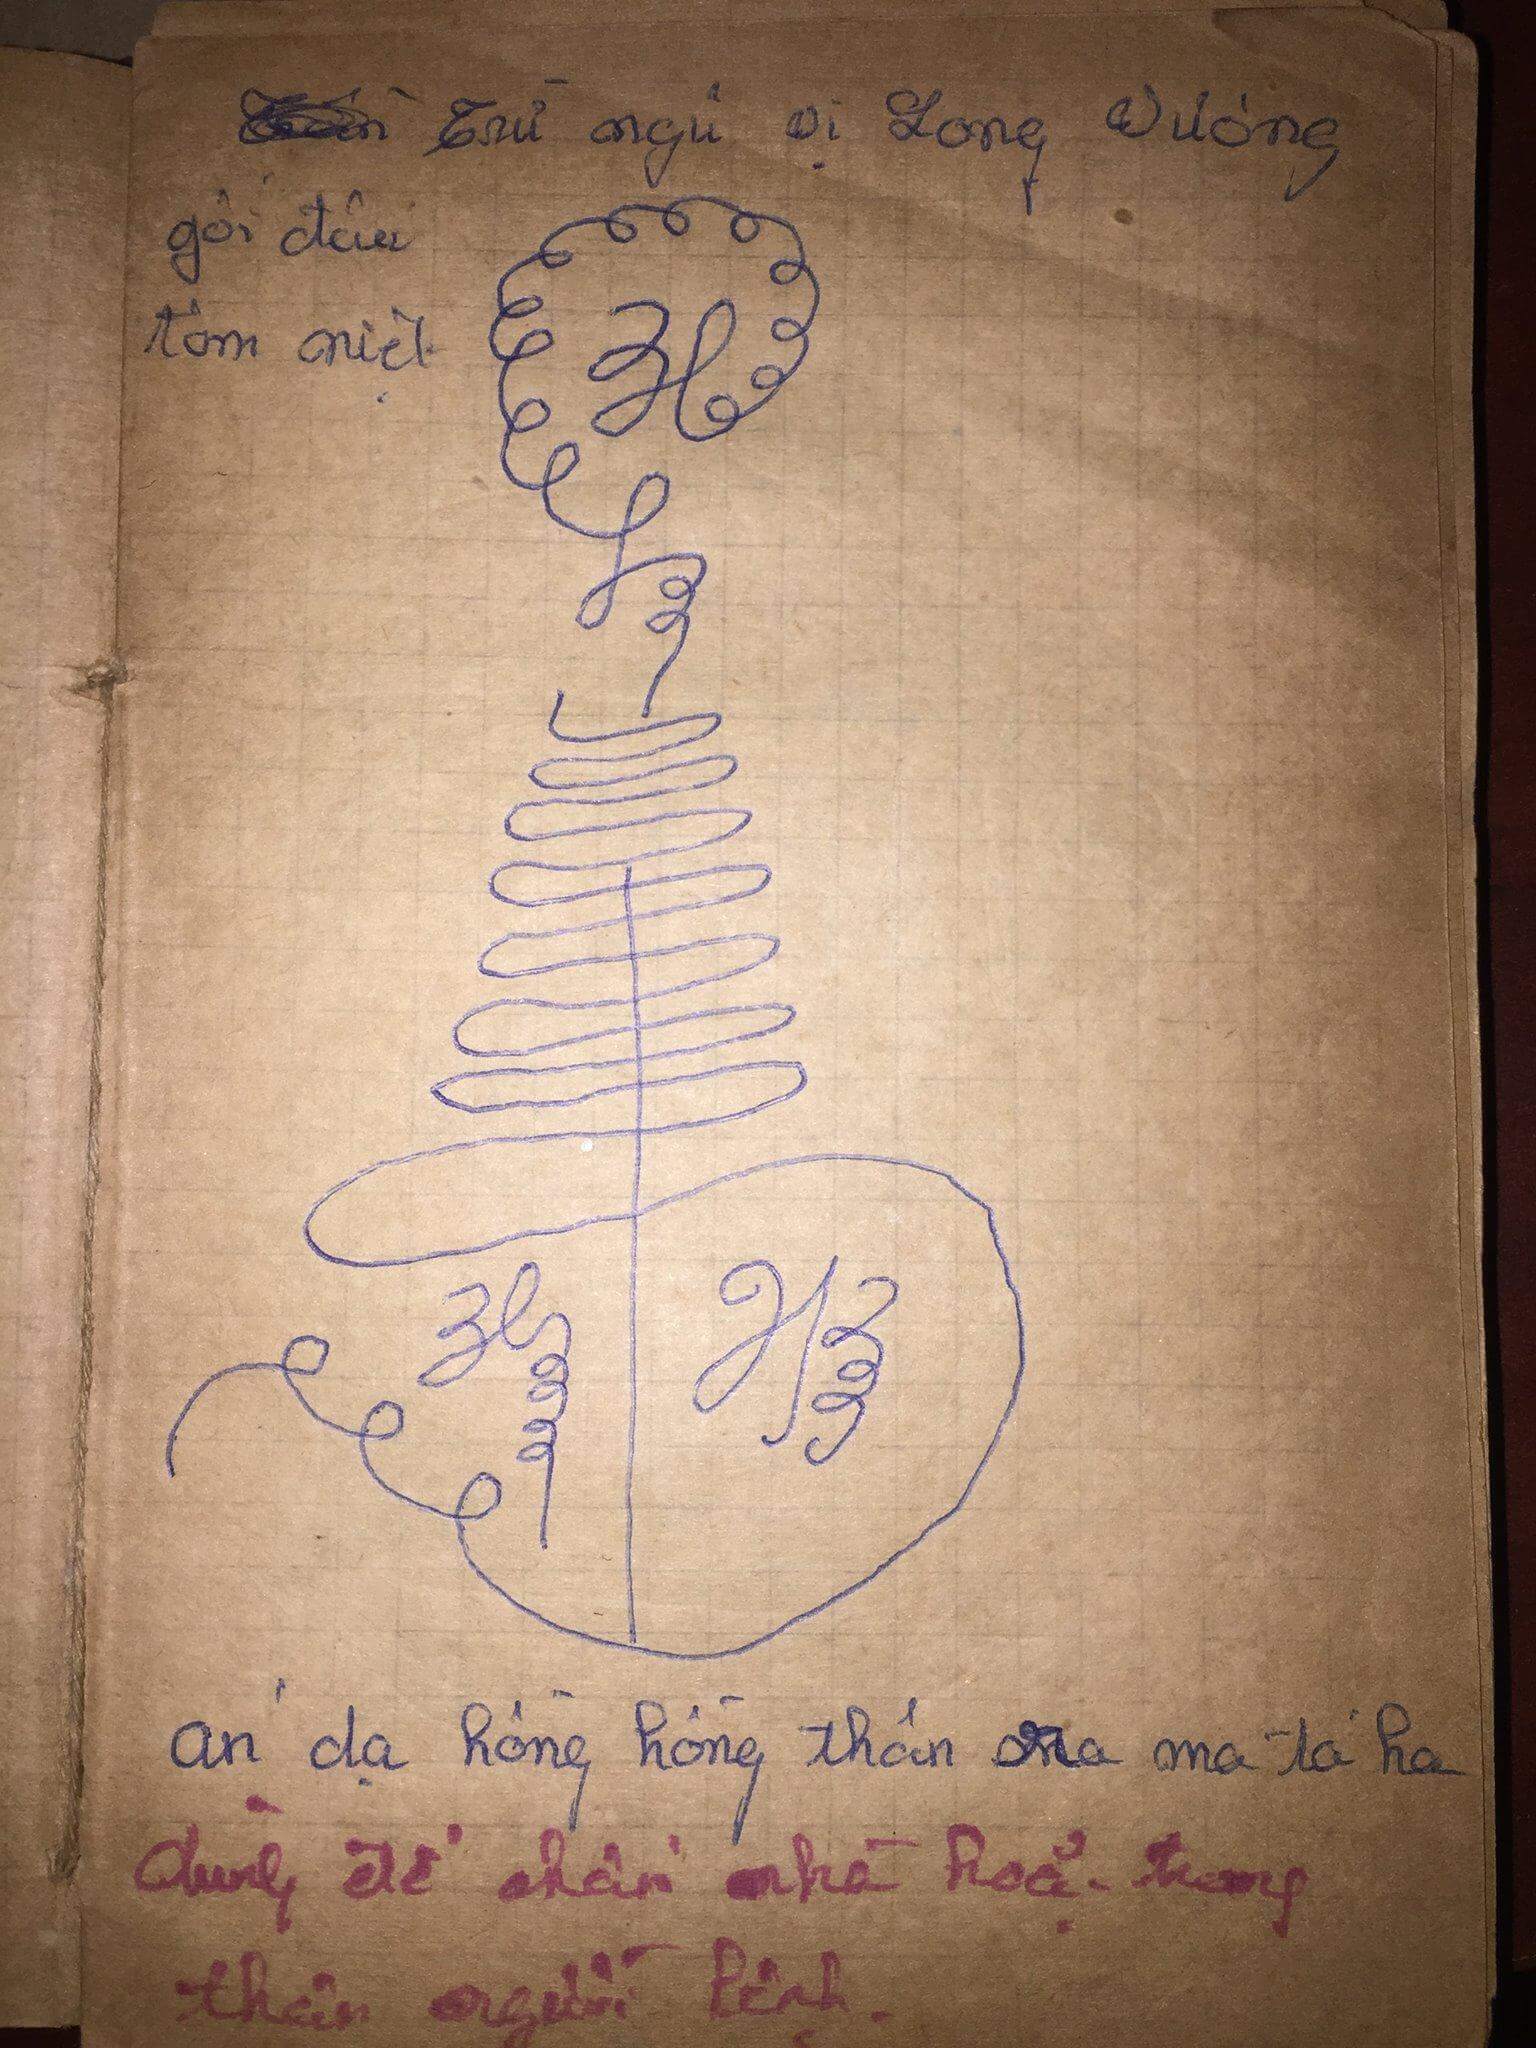 Trừ ngũ vị Long Vương
gối đầu
tôm
án dạ hồng hồng thần ma ta ha
dùng để nhà hoặc trong
thân người bệnh.